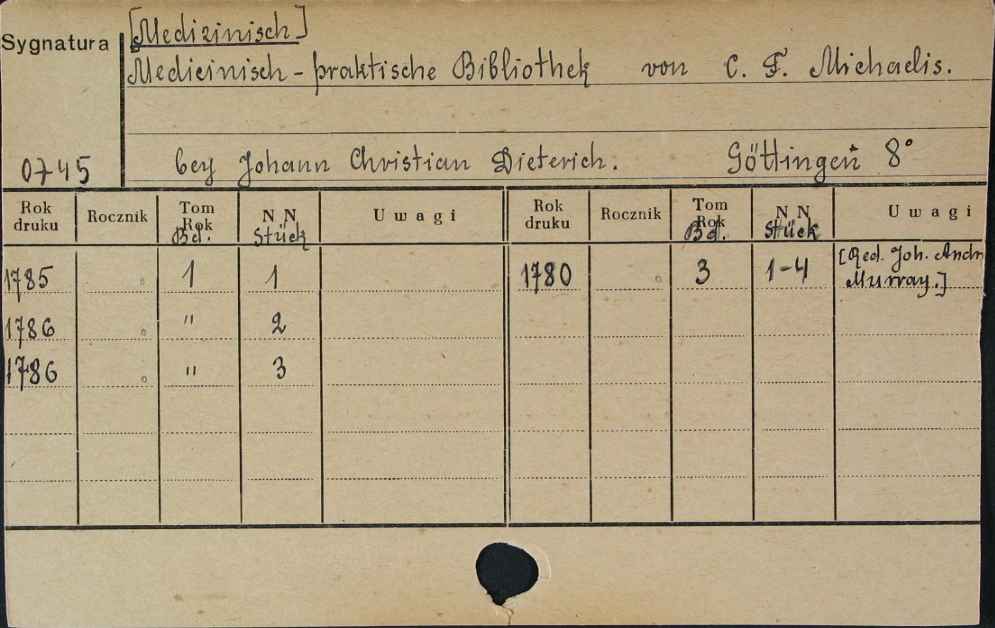 [Medizinisch]
Sygnatura
Medicinisch-praktische Bibliothek von C. F. Michaelis.
0745 bey Johann Christian Dieterich. Göttingen 8°
Rok druku Rocznik Tom Rok Bd. N N Stück Uwagi Rok druku Rocznik Tom Rok Bd. N N Stück Uwagi
1785 1 1 1780 3 1-4 [Red. Joh. Andr
Murray.]
1786 " 2
1786 " 3